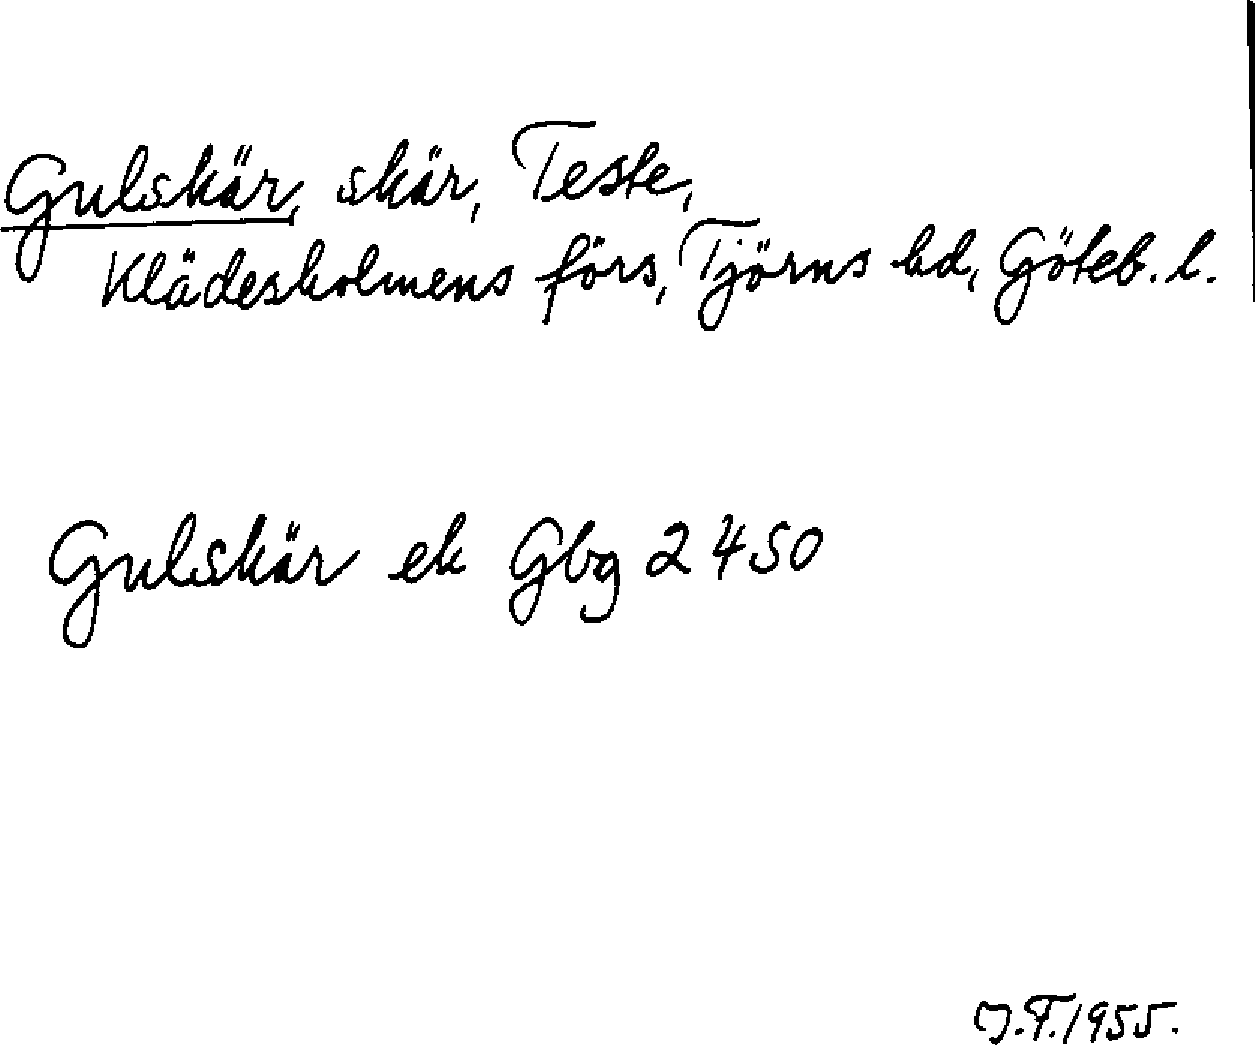 Gulskär, skär, Teste,
Klädesholmens förs, Tjörns hd, Göteb. l.
Gulskär ek Gbg 2450
J.T. 1955.